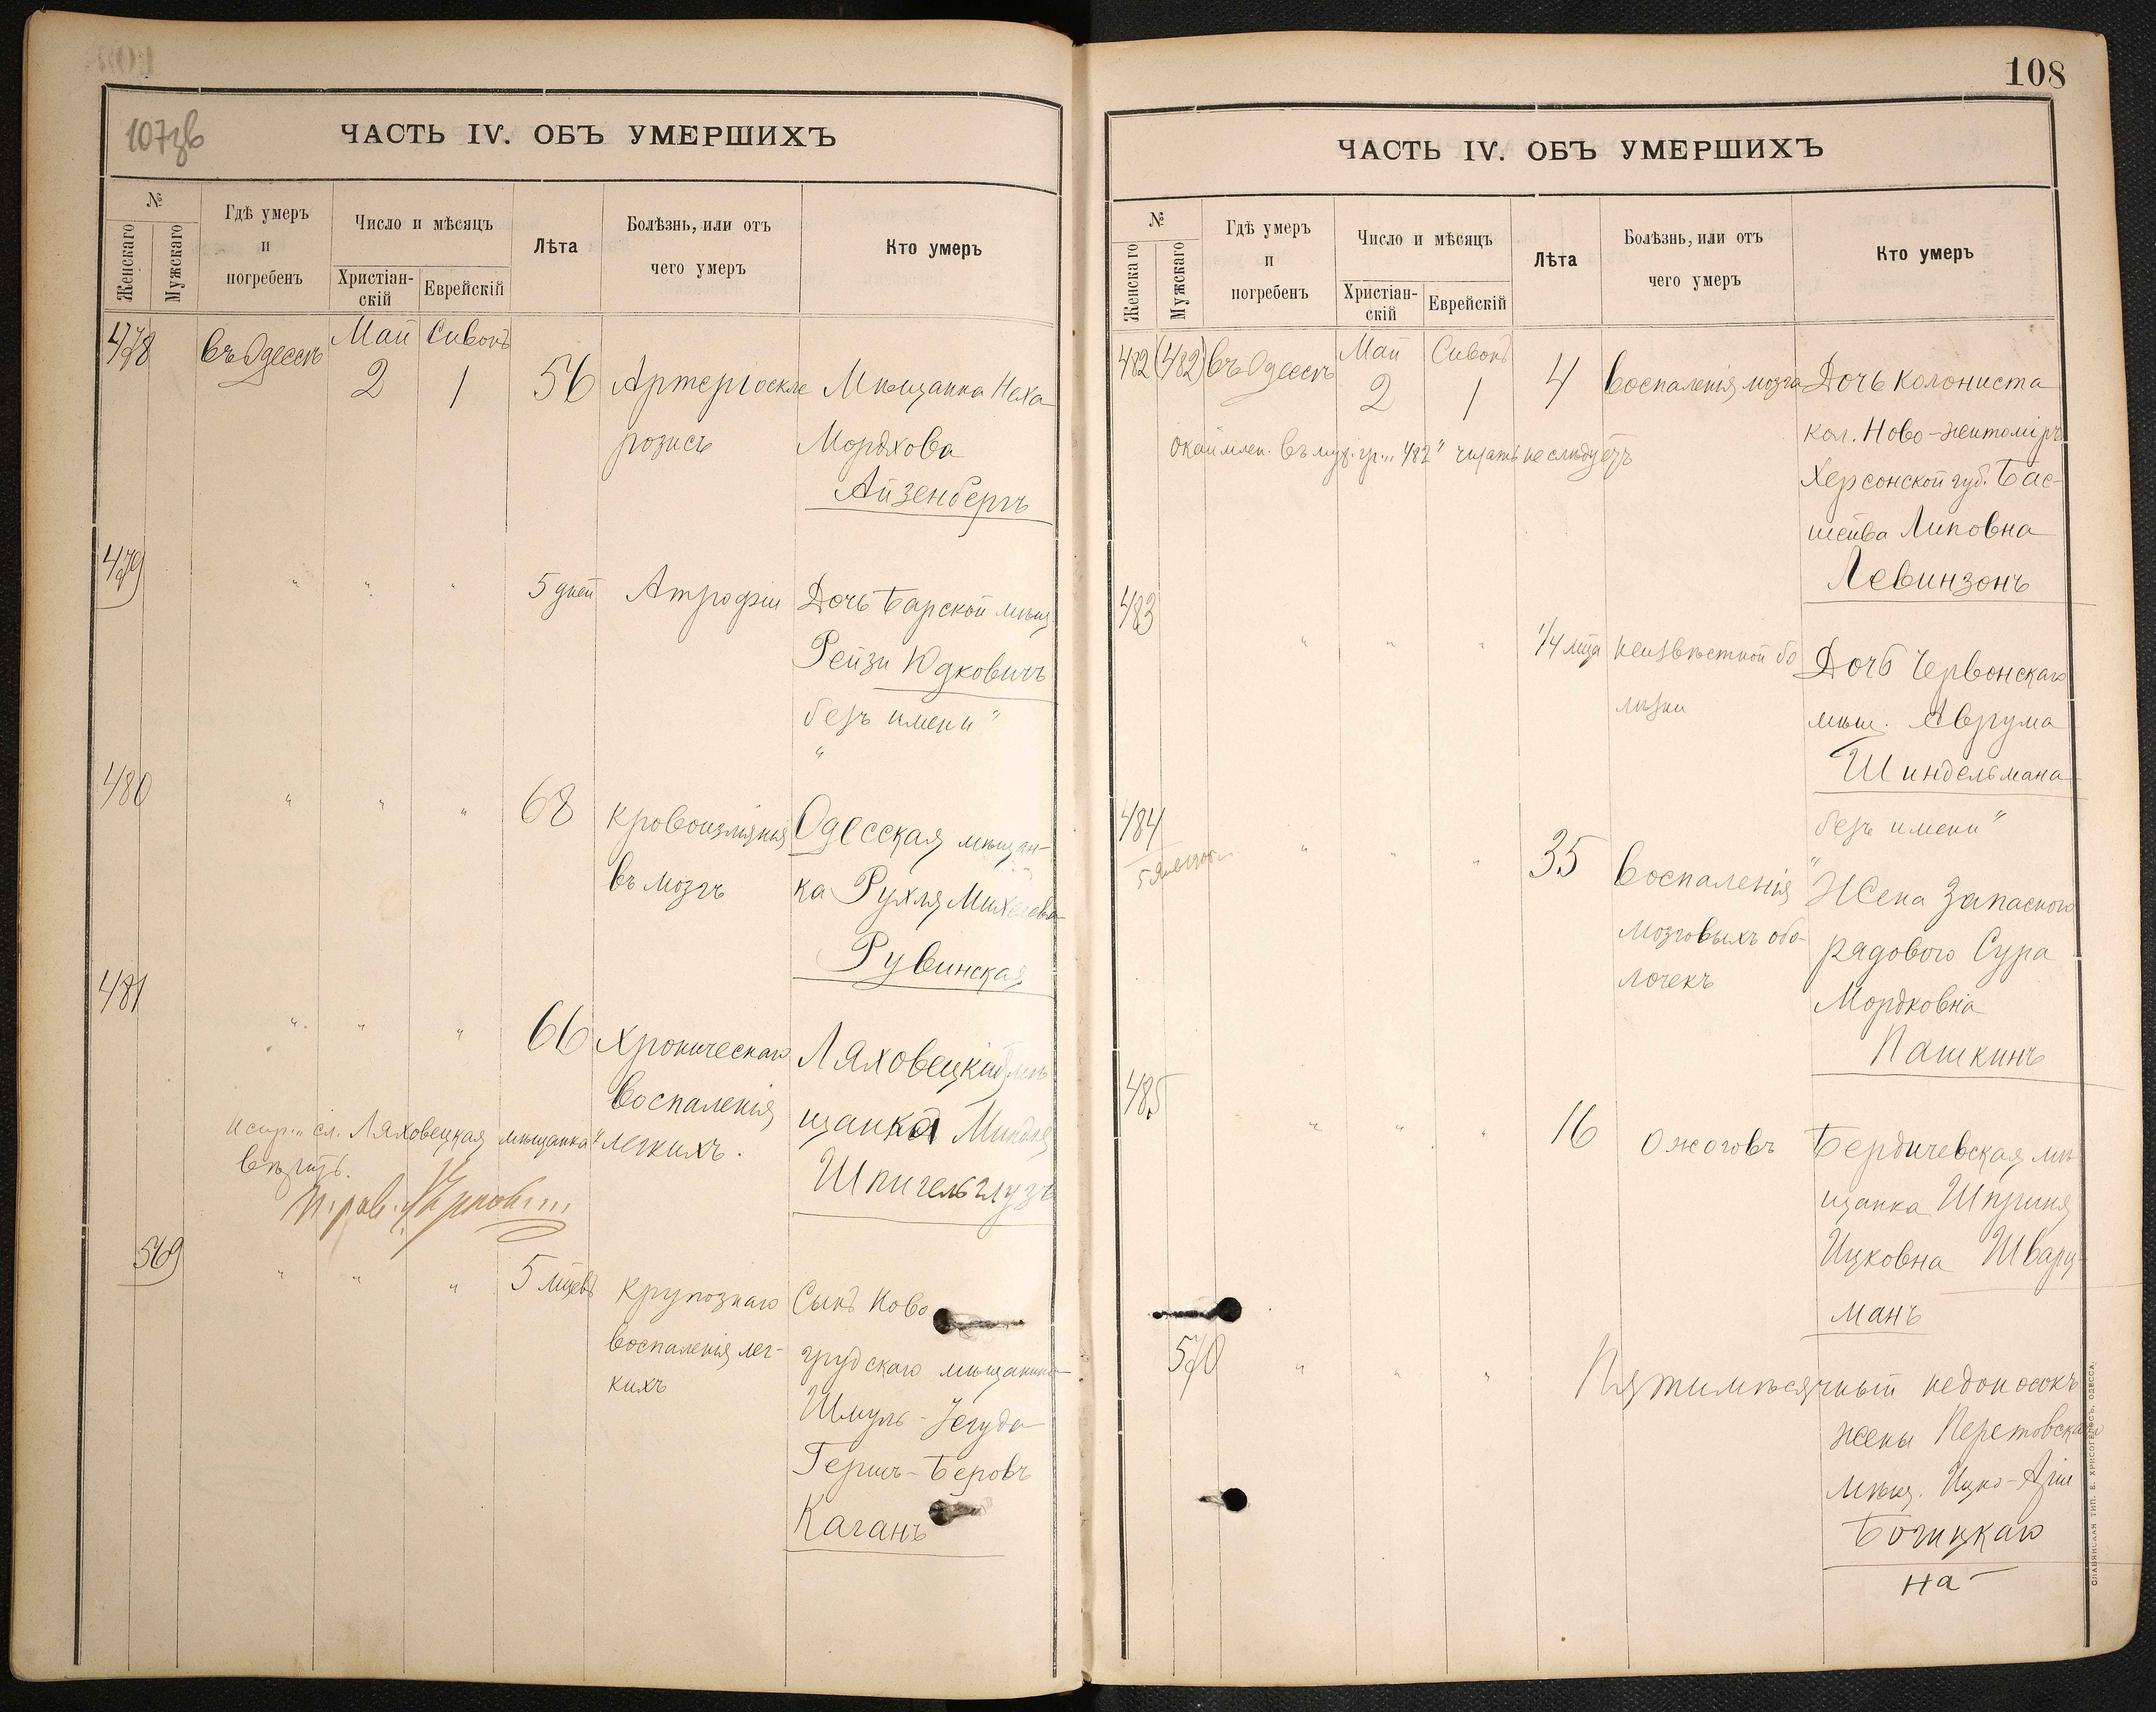 107зв
ЧАСТЬ IV. ОБЪ УМЕРШИХЪ
№
Женскаго
Мужскаго
Гдѣ умеръ
и
погребенъ
Число и мѣсяцъ
Христіан-
скій
Еврейскій
Лѣта
Болѣзнь, или отъ
чего умеръ
Кто умеръ
478 въ Одессѣ Май 2 Сивонъ 1 56 Артеріоскле Мѣщанка Неха
розисъ Мордхова
Айзенбергъ
479 " " " 5 дней Атрофіи Дочь Барской мѣщ.
Рейзи Юдковичъ
безъ имени "
"
480 " " " 68 Кровоизлянія Одесская мѣщан-
въ мозгъ ка Рухля
Рувинская
481 " " " 66 Хроническаго Ляховецкая мѣ
воспаленія щанка Миндля
испр. " сл. Ляховецкая мѣщанка " легкихъ. Шпигельглузъ
вѣрить.
569 " " " 5 мцевъ Крупознаго Сынъ Ново
воспаленія лег- грудскаго мѣщанина
кихъ Шмуль-Іегуда
Гершъ-Беровъ
Каганъ
108
ЧАСТЬ IV. ОБЪ УМЕРШИХЪ
№
Женскаго
Мужскаго
Гдѣ умеръ
и
погребенъ
Число и мѣсяцъ
Христіан-
скій
Еврейскій
Лѣта
Болѣзнь, или отъ
чего умеръ
Кто умеръ
482 (482) въ Одессѣ Май 2 Сивонъ 1 4 воспаленія мозга Дочь колониста
кол. Ново-житоміръ
окаймлен. въ муж. гр. " 482 " читать не слѣдуетъ
Херсонской губ. Бас-
шейва Липовна
Левинзонъ
483 " " " 1/4 мца неизвѣстной бо Дочь Червонскаго
лѣзни мѣщ. Аврума
Шиндельмана
безъ имени "
484 " " " 35 воспаленія "Жена запаснаго
мозговыхъ обо- рядового Сура
лочекъ Мордковна
Пашкинъ
485 " " " 16 ожоговъ Бердичевская мѣ
щанка Шприня
Ицковна Шварц-
манъ
570 " " " Пятимѣсячный недоносокъ
жены
мѣщ. Ицко-Арія
на
СЛАВЯНСКАЯ ТИП. Е. ХРИСОГЕЛОСЪ, ОДЕССА.